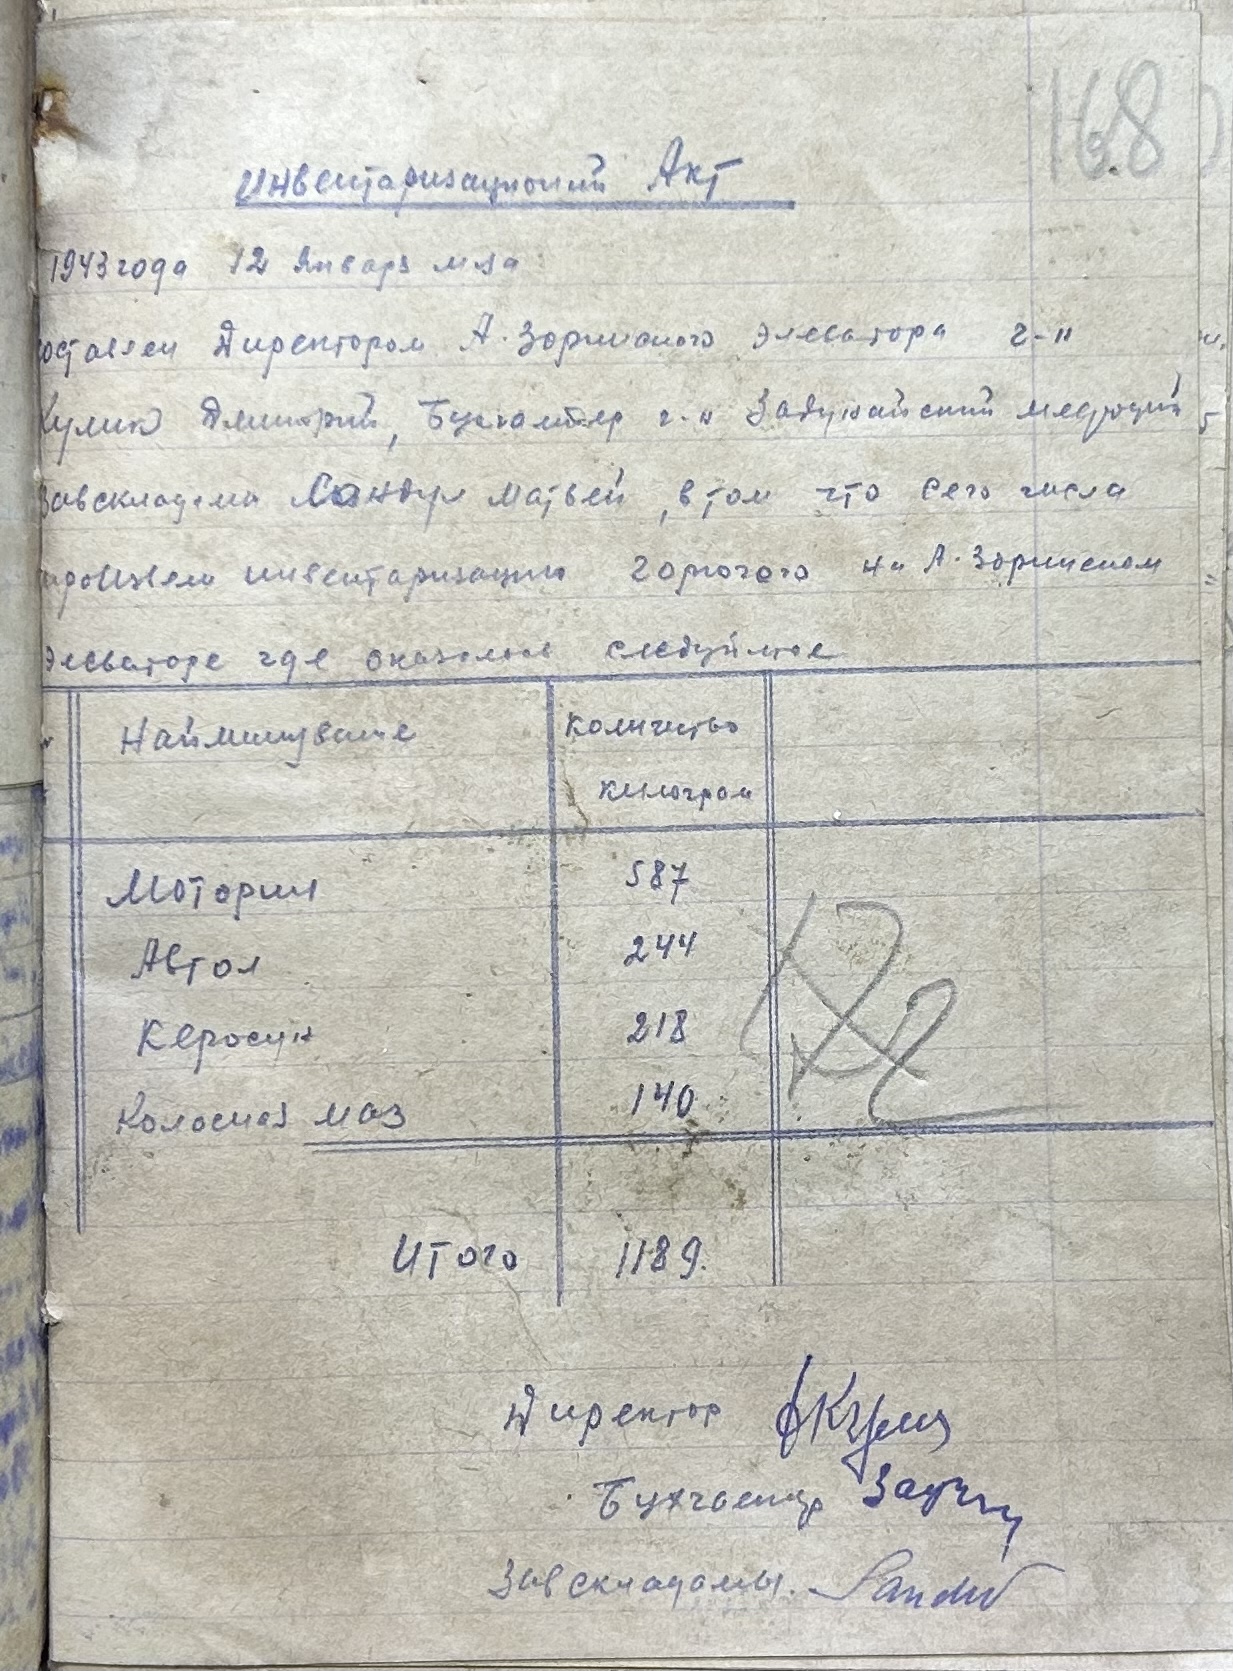 168
Инвентаризационий Акт
1943 года 12 Января м-ца
составлен Директором А. Зоринского элеватора г-н
Кулик Дмитрий, Бухгалтер г-н Задунайский
Завскладами Сандул Матвей, в том что сего числа
произвели инвентаризацию горючого на А. Зоринском
элеваторе где оказалось следуйщее
Найминувание
количество
килограм
Моторин 587
Автол 244
Керосин 218
Колосная маз 140
Итого 1189.
Директор
Бухгалтер
Завскладамы. Sandul